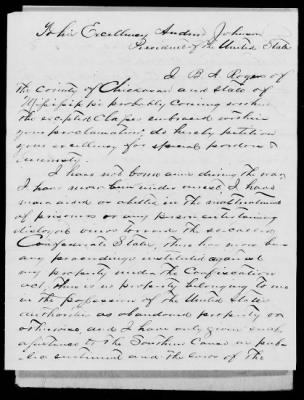 To his Excellency Andrew Johnson
President of the United States
I B A Rogers of
the County of Chickasaw and State of
Mississippi probably coming within
the excepted Clases embraced within
your proclamation, do hereby petition
your excellency for special pardon &
amnesty.
I have not borne arms during the war,
I have never been under arrest, I have
never aided or abetted in the maltreatment
of prisoners or any person entertaining
disloyal views toward the so called
Confederate States, there has never been
any proceedings instituted against
my property under the Confiscation
act, there is no property belonging to me
in the possession of the United States
authorities as abandoned property or
otherwise, and I have only given such
assistance to the Southern Cause as pub-
lic sentiment and the laws of the